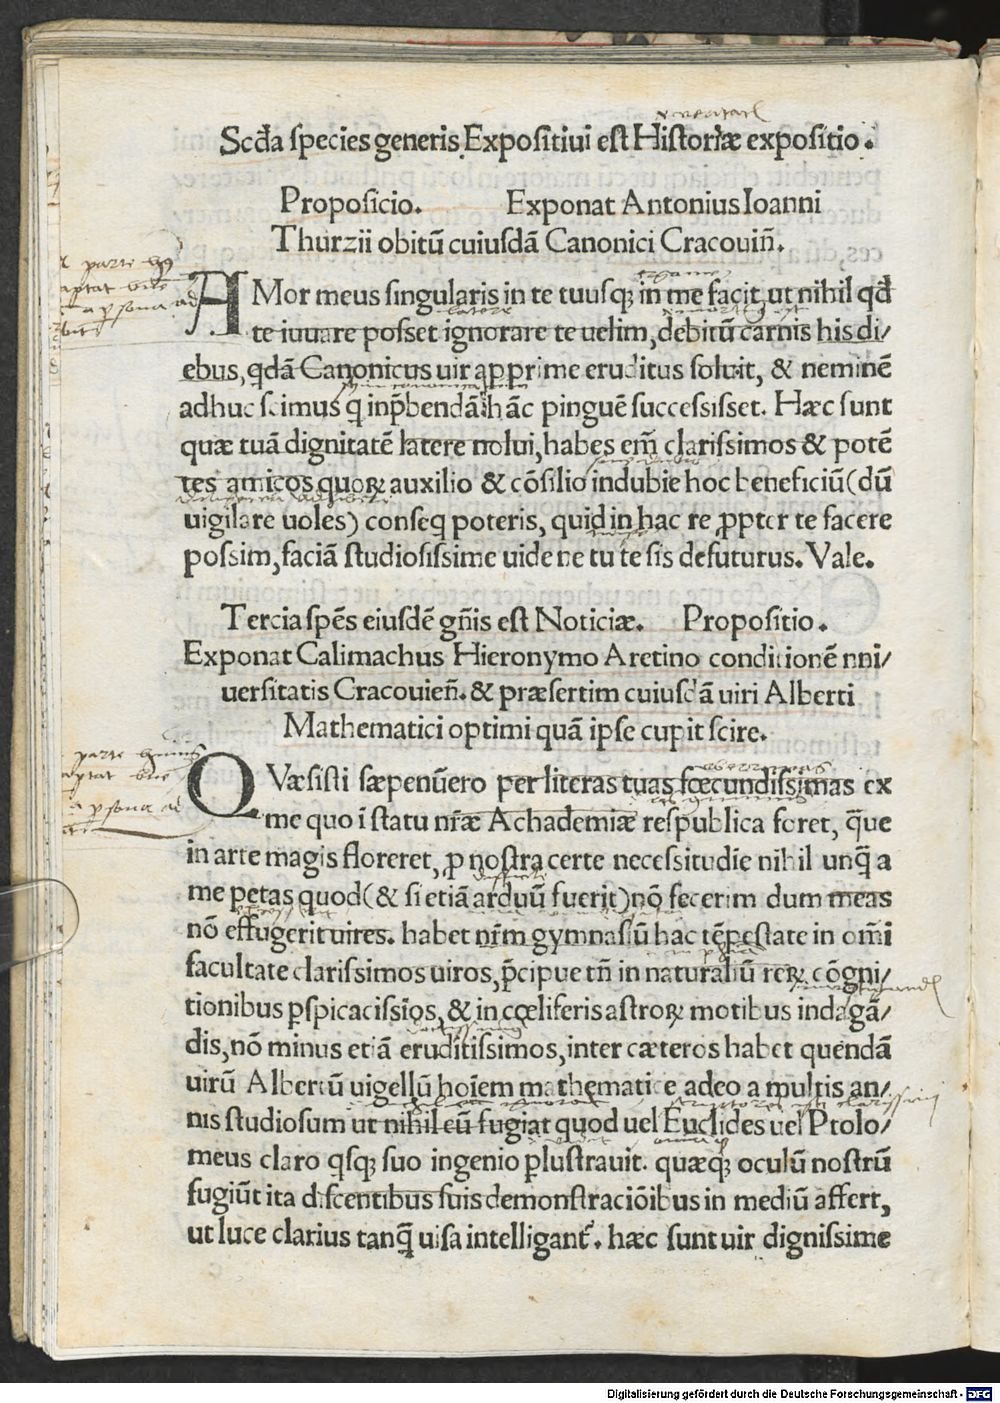 Scďa ſpecies generis Expoſitiui eſt Hiſtoriæ expoſitio.
Propoſicio. Exponat Antonius Ioanni
Thurzii obitũ cuiuſdã Canonici Cracouiñ.
AMor meus ſingularis in te tuuſqꝫ in me facit, ut nihil qď
te iuuare poſſet ignorare te uelim, debitũ carnis his di/
ebus, qďã Canonicus uir apprime eruditus ſoluit, & neminẽ
adhuc ſcimus q inp̃bendã hãc pinguẽ ſucceſſiſſet. Hæc ſunt
quæ tuã dignitatẽ latere nolui, habes em̃ clariſſimos & potẽ
tes amicos quoꝝ auxilio & cõſilio indubie hoc beneficiũ (dũ
uigilare uoles) conſeq poteris, quid in hac re ꝓpter te facere
poſſim, faciã ſtudioſiſſime uide ne tu te ſis defuturus. Vale.
Tercia ſpẽs eiuſdẽ gñis eſt Noticiæ. Propoſitio.
Exponat Calimachus Hieronymo Aretino conditionẽ nni/
uerſitatis Cracouieñ. & præſertim cuiuſdã uiri Alberti
Mathematici optimi quã ipſe cupit ſcire.
parte
QVæſiſti ſæpenũero per literas tuas fœcundiſſimas ex
me quo ĩ ſtatu nr̃æ Achademiæ reſpublica foret, q̃ue
in arte magis floreret, ꝓ noſtra certe neceſſitudĩe nihil unq̃ a
me petas quod (& ſi etiã arduũ fuerit) nõ fecerim dum meas
nõ effugerit uires. habet nr̃m gymnaſiũ hac tẽpeſtate in om̃i
facultate clariſſimos uiros, p̃cipue tñ in naturaliũ reꝝ cõgni/
tionibus ꝑſpicaciſſiõs, & in cœliferis aſtroꝝ motibus indagã/
dis, nõ minus etiã eruditiſſimos, inter cæteros habet quendã
uirũ Albertũ uigellũ hoĩem mathematice adeo a multis an/
nis ſtudioſum ut nihil eũ fugiat quod uel Euclides uel Ptolo/
meus claro qſqꝫ ſuo ingenio ꝑluſtrauit. quæqꝫ oculũ noſtrũ
fugiũt ita diſcentibus ſuis demonſtraciõibus in mediũ affert,
ut luce clarius tanq̃ uiſa intelligant᷑. hæc ſunt uir digniſſime
Digitalisierung gefördert durch die Deutsche Forschungsgemeinschaft - DFG